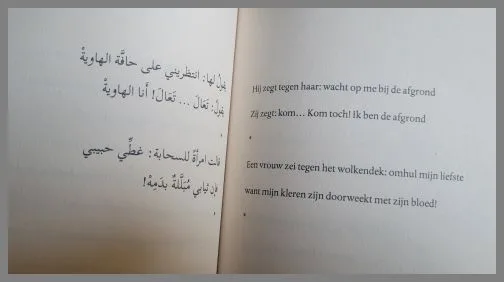 يقولُ لها: انتظريني على حافَّة الهاويةْ
تقولُ: تَعَالَ ... تَعَالَ! أَنا الهاويةْ
*
قالت امرأةٌ للسحابة: غطِّي حبيبي
فإن ثيابي مُبَلَّلةٌ بدَمِهْ!
*
Hij zegt tegen haar: wacht op me bij de afgrond
Zij zegt: kom... Kom toch! Ik ben de afgrond
*
Een vrouw zei tegen het wolkendek: omhul mijn liefste
want mijn kleren zijn doorweekt met zijn bloed!
*